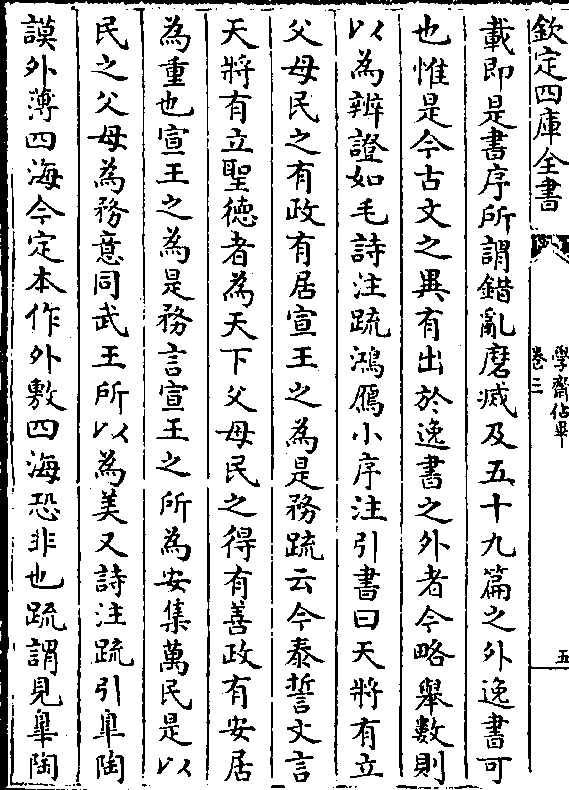 欽定四庫全書
學齋佔畢
卷三
五
載即是書序所謂錯亂磨滅及五十九篇之外逸書可
也惟是今古文之異有出於逸書之外者今略舉數則
以為辨證如毛詩注䟽鴻鴈小序注引書曰天將有立
父母民之有政有居宣王之為是務䟽云今泰誓文言
天將有立聖德者為天下父母民之得有善政有安居
為重也宣王之為是務言宣王之所為安集萬民是以
民之父母為務意同武王所以為美又詩注䟽引臯陶
謨外薄四海今定本作外敷四海恐非也䟽謂見臯陶